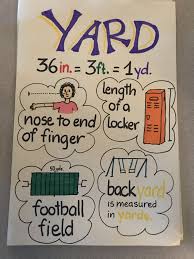 YARD
36in. = 3ft. = 1yd.
nose to end
of finger
length
of a
locker
50 yds.
football
field
backyard
is measured
in yards.